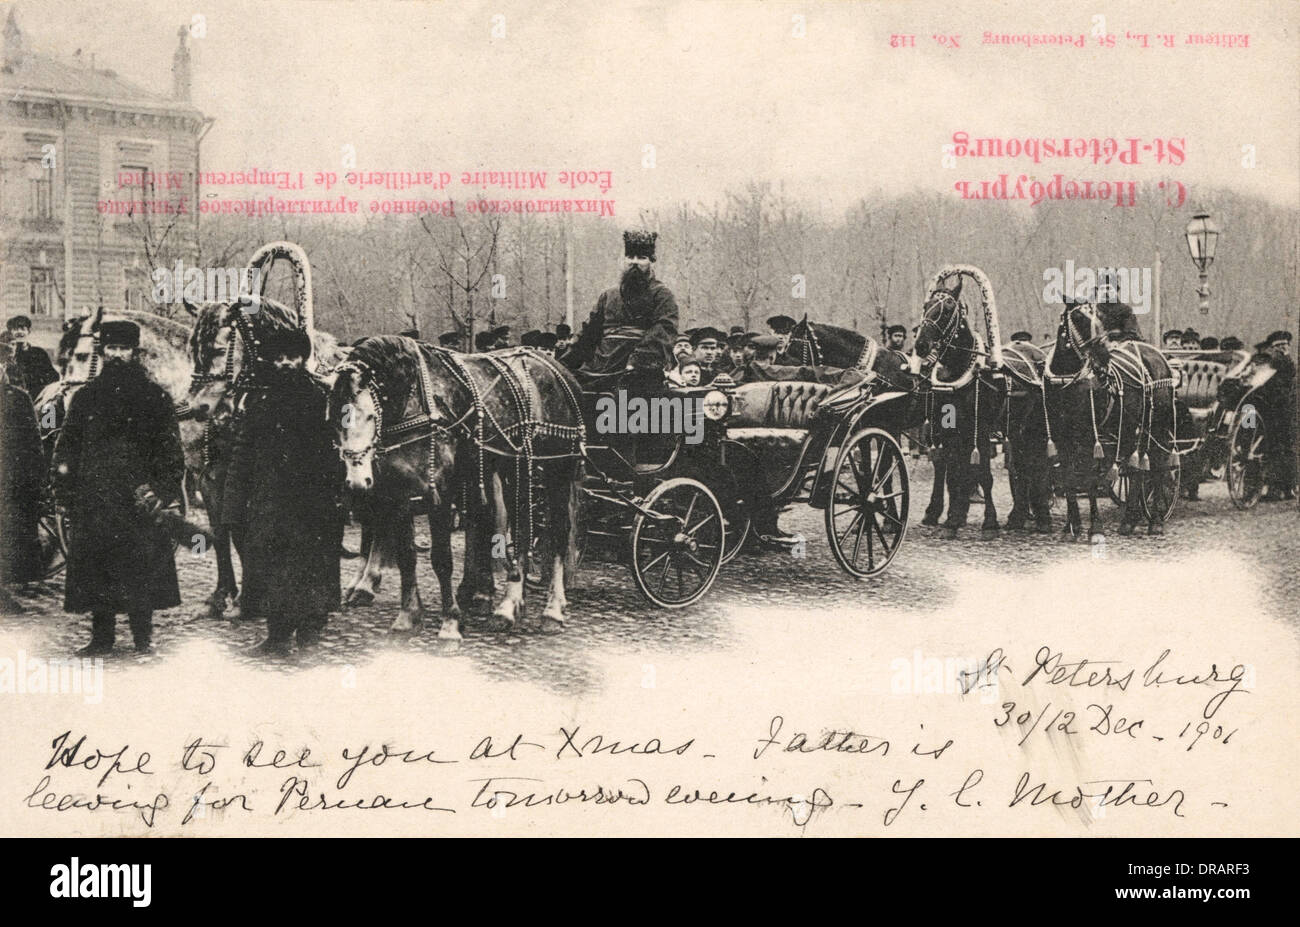 Editeur R. L., St-Petersbourg No. 112
С. Петербургъ
St-Pétersbourg
Михаиловское Военное артиллерійское училище
École Militaire d'artillerie de l'Empereur Michel
St Petersburg
30/12 Dec - 1901
Hope to see you at Xmas - Father is
leaving for Pernau tomorrow evening - Y. l. Mother -
alamy
Image ID: DRARF3
www.alamy.com